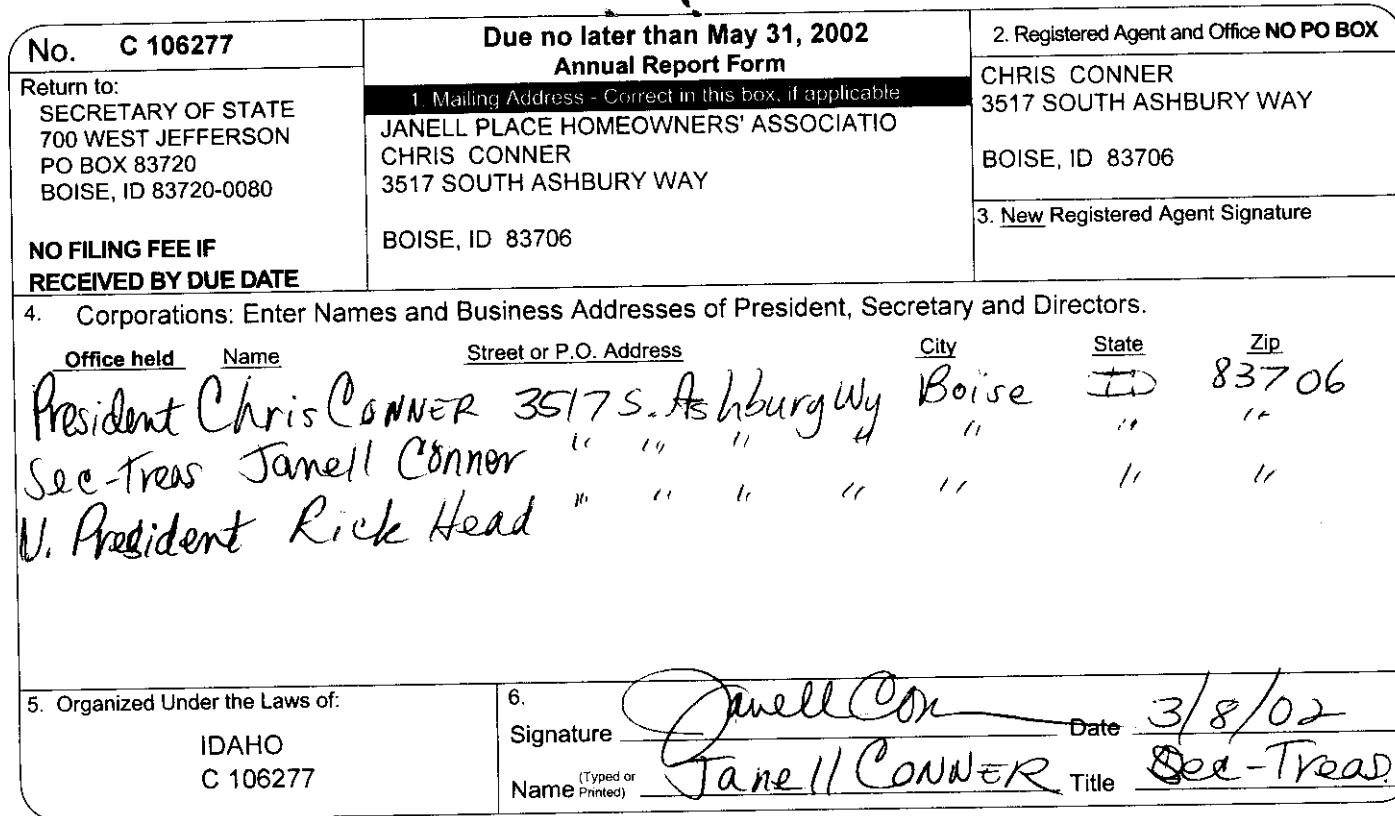 No. C 106277
Return to:
SECRETARY OF STATE
700 WEST JEFFERSON
PO BOX 83720
BOISE, ID 83720-0080
NO FILING FEE IF
RECEIVED BY DUE DATE
Due no later than May 31, 2002
Annual Report Form
1. Mailing Address - Correct in this box, if applicable
JANELL PLACE HOMEOWNERS' ASSOCIATIO
CHRIS CONNER
3517 SOUTH ASHBURY WAY
BOISE, ID 83706
2. Registered Agent and Office NO PO BOX
CHRIS CONNER
3517 SOUTH ASHBURY WAY
BOISE, ID 83706
3. New Registered Agent Signature
4. Corporations: Enter Names and Business Addresses of President, Secretary and Directors.
Office held Name Street or P.O. Address City State Zip
President Chris CONNER 3517 S. Ashbury Wy Boise ID 83706
Sec-Treas Janell Conner " " " " " " "
V. President Rick Head " " " " " " "
5. Organized Under the Laws of:
IDAHO
C 106277
6.
Signature Janell Con Date 3/8/02
Name (Typed or Printed) Janell CONNER Title Sec-Treas.